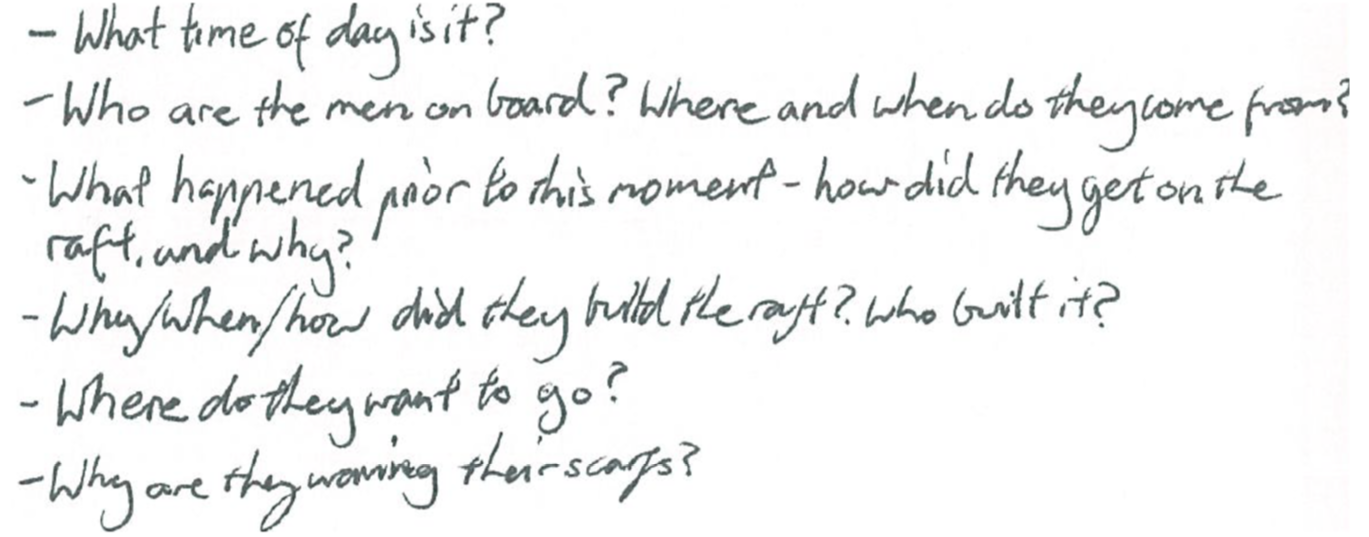 - What time of day is it?
- Who are the men on board? Where and when do they come from?
- What happened prior to this moment - how did they get on the
raft, and why?
- Why/when/how did they build the raft? Who built it?
- Where do they want to go?
- Why are they waving their scarfs?